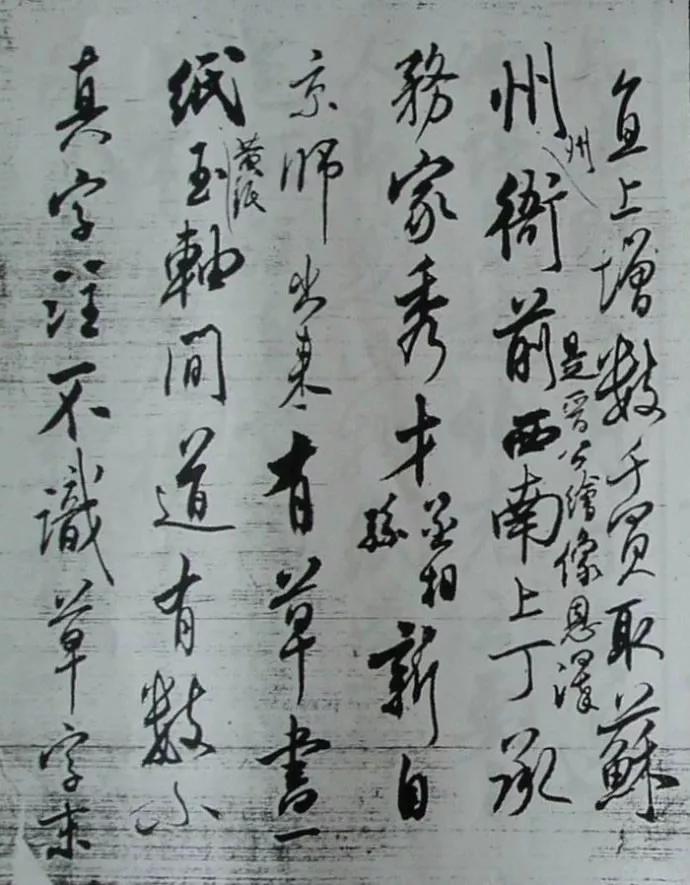 直上增數千買取蘇
州
是晉公繪像恩澤
州衙前西南上丁承
務家秀才
丞相
孫
新自
京師出來有草書一
紙
黃紙
玉軸間道有數小
真字注不識草字末